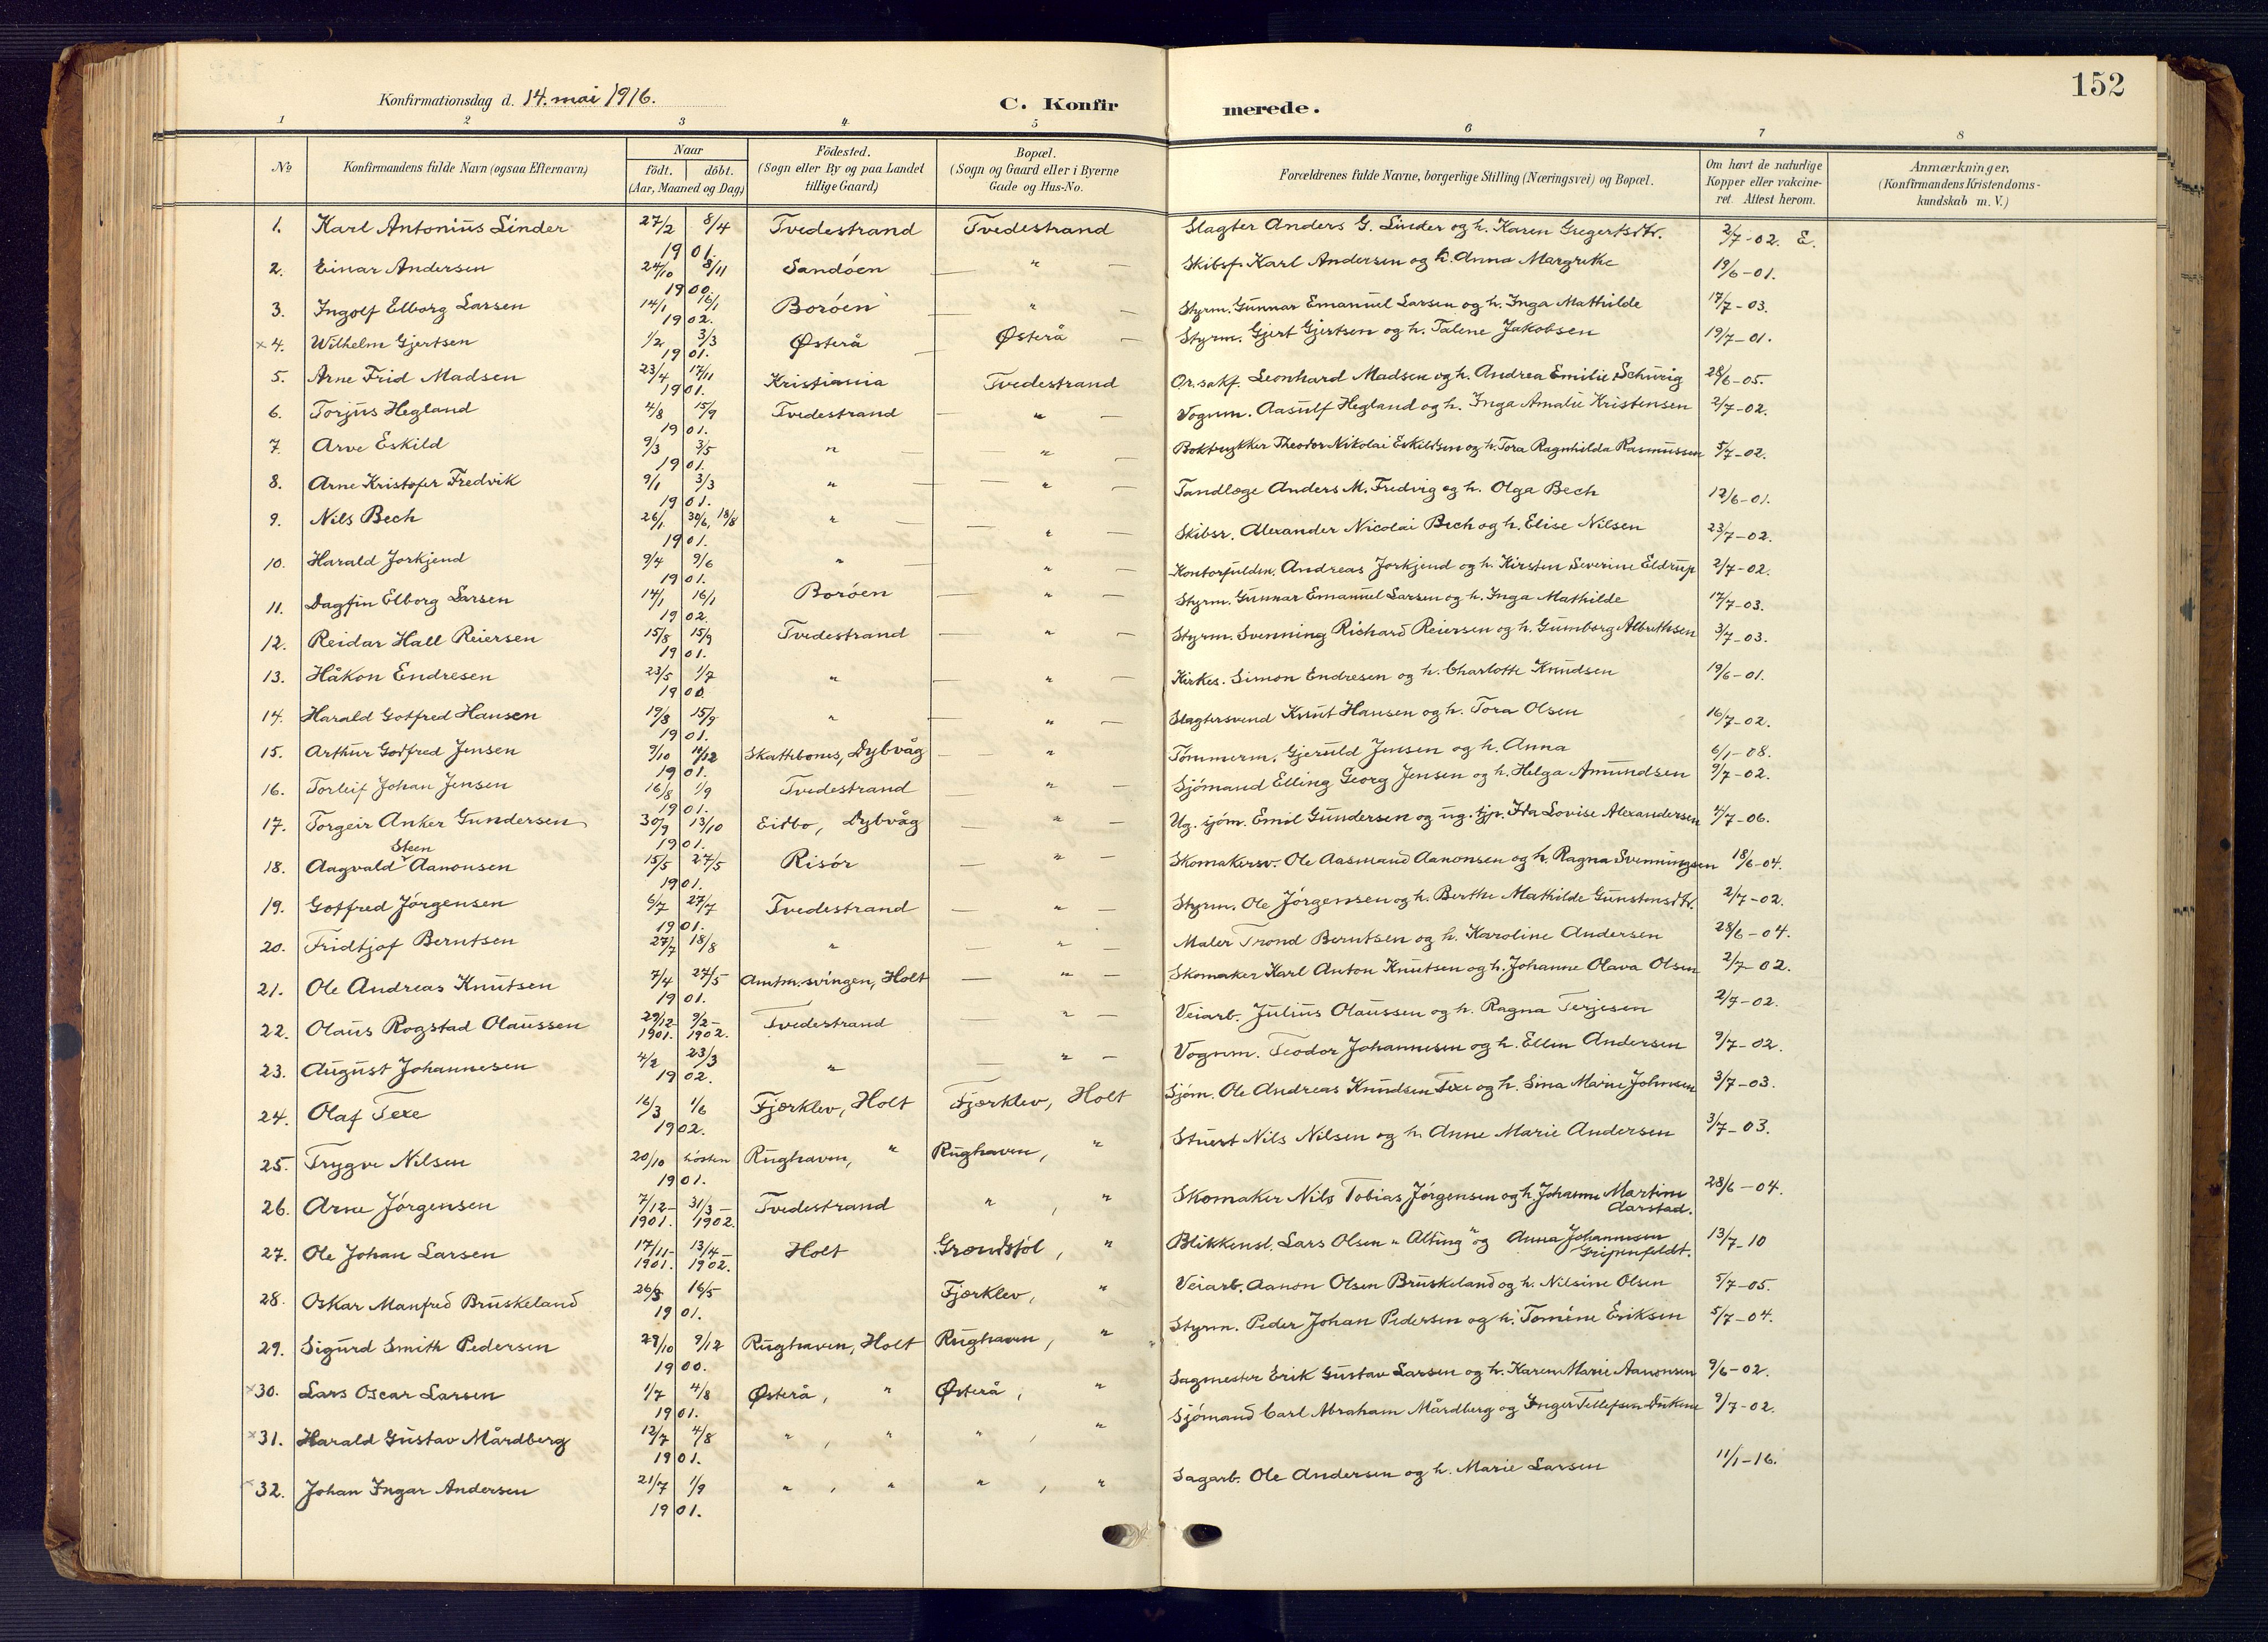 152
Konfirmationsdag d. 14. mai 1916.
C. Konfirmerede.
1 2 3 4 5 6 7 8
No | Konfirmandens fulde Navn (ogsaa Efternavn) | Naar födt. | döbt. (Aar, Maaned og Dag) | Födested. (Sogn eller By og paa Landet tillige Gaard) | Bopæl. (Sogn og Gaard eller i Byerne Gade og Hus-No. | Forældrenes fulde Navne, borgerlige Stilling (Næringsvei) og Bopæl. | Om havt de naturlige Kopper eller vakcineret. Attest herom. | Anmærkninger. (Konfirmandens Kristendomskundskab m. V.)
1. Karl Antonius Linder 27/2 8/4 1901. Tvedestrand Tvedestrand Slagter Anders G. Linder og h. Karen Gregertsdtr. 2/7-02. E.
2. Einar Andersen 24/10 8/11 1900. Sandöen — " — Skibsf. Karl Andersen og h. Anna Margrethe 19/6-01.
3. Ingolf Elborg Larsen 14/1 16/1 1902. Boröen — " — Styrm. Gunnar Emanuel Larsen og h. Inga Mathilde 17/7-03.
×4. Wilhelm Gjertsen 1/2 3/3 1901. Østerå — Østerå — Styrm. Gjert Gjertsen og h. Talene Jakobsen 19/7-01.
5. Arne Frid Madsen 23/4 17/11 1901. Kristiania Tvedestrand Or. sakf. Leonhard Madsen og h. Andrea Emilie Schurig 28/6-05.
6. Torjus Hegland 4/8 15/9 1901. Tvedestrand — " — Vognm. Aasulf Hegland og h. Inga Amalie Kristensen 2/7-02.
7. Arve Eskild 9/3 3/5 1901. " — " — Boktrykker Theodor Nikolai Eskildsen og h. Tora Ragnhilda Rasmussen 5/7-02.
8. Arne Kristofer Fredvik 9/1 3/3 1901. " — " — Tandlæge Anders M. Fredvig og h. Olga Bech 12/6-01.
9. Nils Bech 26/1 30/6, 18/8 1901. " — " — Skibsr. Alexander Nicolai Bech og h. Elise Nilsen 23/7-02.
10. Harald Jorkjend 9/4 9/6 1901. " — " — Kontorfuldm. Andreas Jorkjend og h. Kirsten Severine Eldrup 2/7-02.
11. Dagfin Elborg Larsen 14/1 16/1 1902. Boröen — " — Styrm. Gunnar Emanuel Larsen og h. Inga Mathilde 17/7-03.
12. Reidar Hall Reiersen 15/8 15/9 1901. Tvedestrand — " — Styrm. Svenning Richard Reiersen og h. Gumborg Albrethsen 3/7-03.
13. Håkon Endresen 23/5 1/7 1900. " — " — Kirkes. Simon Endresen og h. Charlotte Knudsen 19/6-01.
14. Harald Gotfred Hansen 19/8 15/9 1901. " — " — Slagtersvend Knut Hansen og h. Tora Olsen 16/7-02.
15. Arthur Godfred Jensen 9/10 11/12 1901. Skattebones, Dybvåg — " Tömmerm. Gjeruld Jensen og h. Anna 6/1-08.
16. Torleif Johan Jensen 16/8 1/9 1901. Tvedestrand — " — Sjömand Elling Georg Jensen og h. Helga Amundsen 9/7-02.
17. Torgeir Anker Gundersen 30/9 13/10 1901. Eidbo, Dybvåg — " — Ug. sjöm. Emil Gundersen og ug. tjp. Ida Lovise Alexandersen 4/7-06.
18. Aagvald Steen Aanonsen 15/5 27/5 1901. Risör — " — Skomakersv. Ole Aasmund Aanonsen og h. Ragna Svenningsen 18/6-04.
19. Gotfred Jörgensen 6/7 27/7 1901. Tvedestrand — " — Styrm. Ole Jörgensen og h. Berthe Mathilde Gunstensdtr. 2/7-02.
20. Fridtjof Berntsen 27/7 18/8 " — " — Maler Trond Berntsen og h. Karoline Andersen 28/6-04.
21. Ole Andreas Knutsen 7/4 27/5 1901. Amtm.svingen, Holt — " — Skomaker Karl Anton Knutsen og h. Johanne Olava Olsen 2/7-02.
22. Olaus Rogstad Olaussen 29/12-1901. 9/2-1902. Tvedestrand — " — Veiarb. Julius Olaussen og h. Ragna Terjesen 2/7-02.
23. August Johannesen 4/2 23/3 1902. " — " — Vognm. Teodor Johannesen og h. Ellen Andersen 9/7-02.
24. Olaf Texe 16/3 1/6 1902. Fjærklev, Holt Fjærklev, Holt Sjöm. Ole Andreas Knudsen Texe og h. Sina Marie Johnsen 3/7-03.
25. Trygve Nilsen 20/10 hösten 1901. Rughaven, " Rughaven, " Stuert Nils Nilsen og h. Anne Marie Andersen 3/7-03.
26. Arne Jörgensen 7/12-1901. 31/3-1902. Tvedestrand " , " Skomaker Nils Tobias Jörgensen og h. Johanne Martine Aarstad. 28/6-04.
27. Ole Johan Larsen 17/11-1901. 13/4-1902. Holt Grændsjöl, " Blikkensl. Lars Olsen "Alting" og Anna Johannesen Gripenfeldt. 13/7-10
28. Oskar Manfred Bruskeland 26/3 16/5 1901. Fjærklev, " Veiarb. Aanon Olsen Bruskeland og h. Nilsine Olsen 5/7-05.
29. Sigurd Smith Pedersen 29/10 9/12 1900. Rughaven, Holt Rughaven, " Styrm. Peder Johan Pedersen og h. Tomine Eriksen 5/7-04.
×30. Lars Oscar Larsen 1/7 4/8 1901. Østerå, " Østerå, " Sagmester Erik Gustav Larsen og h. Karen Marie Aanonsen 9/6-02.
×31. Harald Gustav Mårdberg 12/7 4/8 1901. " , " " , " Sjömand Carl Abraham Mårdberg og Inger Tellefsen Dukene 9/7-02.
×32. Johan Ingar Andersen 21/7 1/9 1901. " , " " , " Sagarb. Ole Andersen og h. Marie Larsen 11/1-16.